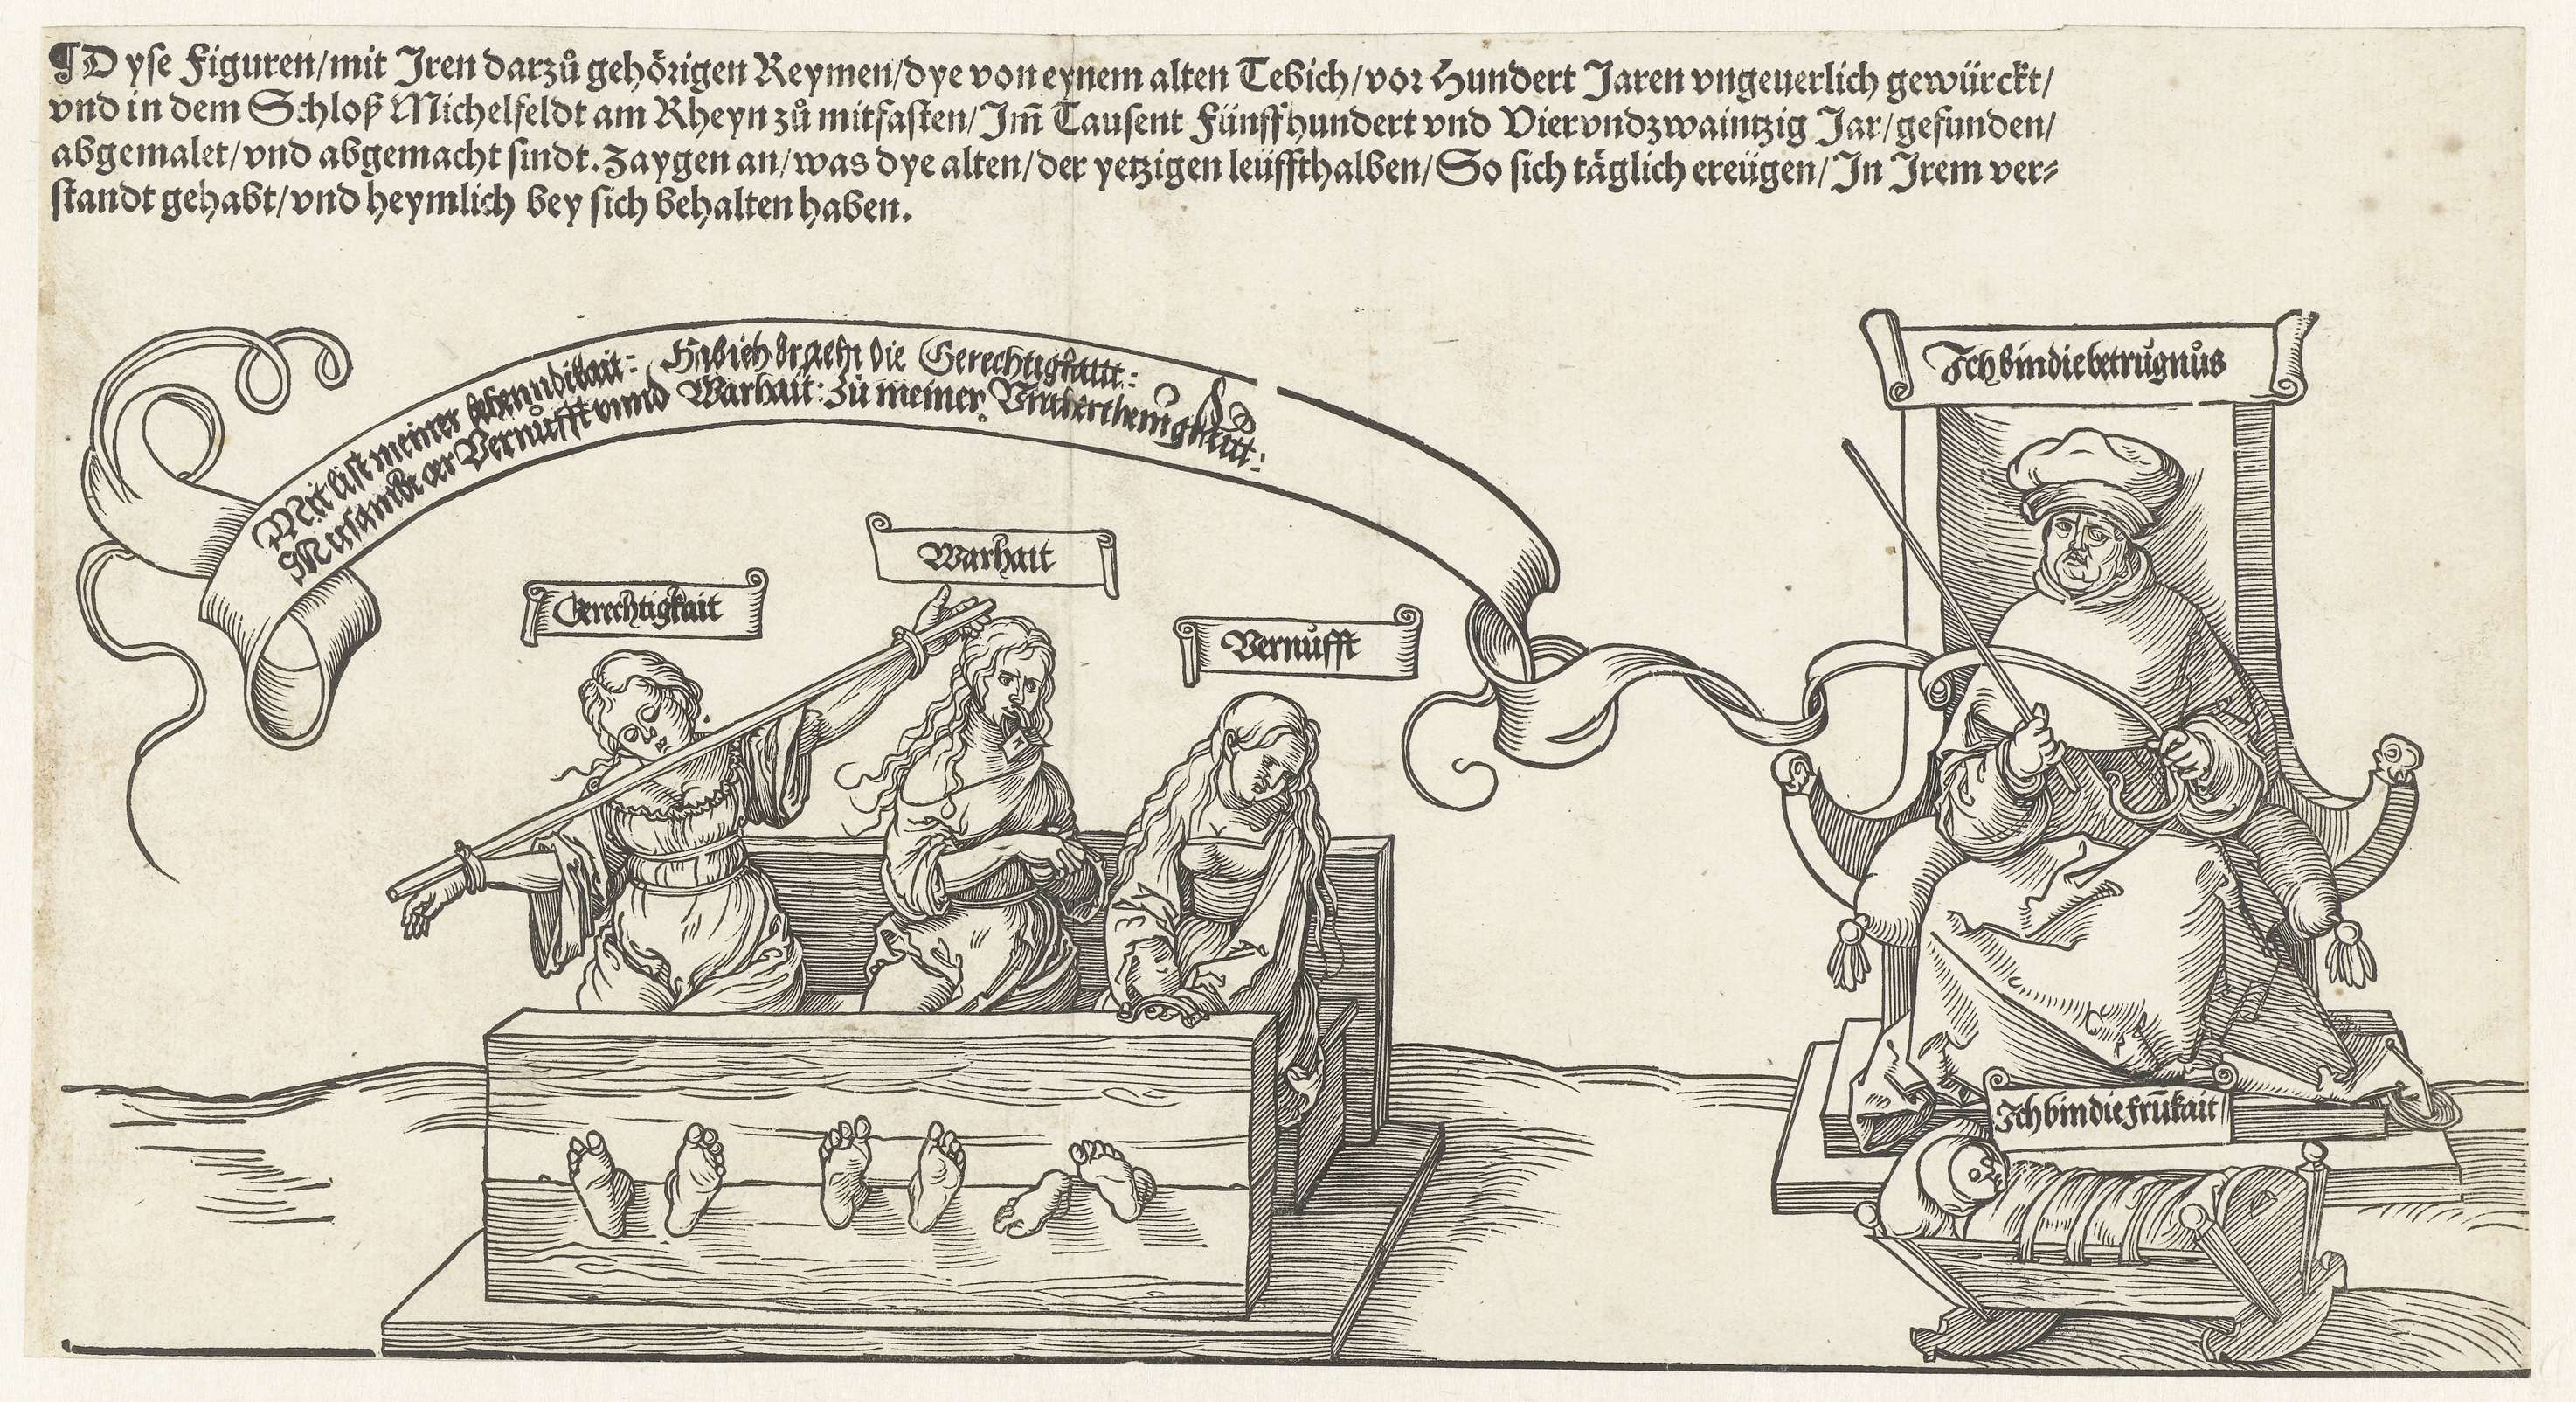 ¶Dyse Figuren/mit Jren darzů gehörigen Reymen/dye von eynem alten Tebich/vor Hundert Jaren vngeuerlich gewürckt/
vnd in dem Schloß Michelfeldt am Rheyn zů mitfasten/Jm̄ Tausent Fünffhundert vnd Vierundzwaintzig Jar/gefunden/
abgemalet/vnd abgemacht sindt. Zaygen an/was dye alten/der yetzigen leüffthalben/So sich täglich ereügen/Jn Jrem ver⸗
standt gehabt/vnd heymlich bey sich behalten haben.
Mit list meiner behenndikait: Hab ich bracht die Gerechtigkaitt:
Mitsambt der Vernůfft vnnd Warhait: Zů meiner Vnnderthenigkaitt:
Jch bin die betrůgnůs
Warhait
Gerechtigkait
Vernůfft
Jch bin die frūkait